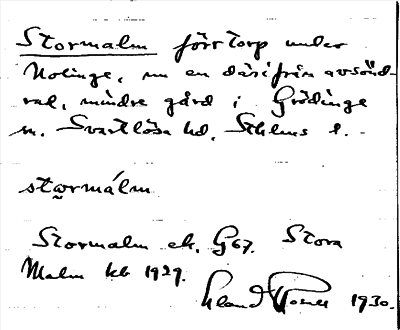 Stormalm förr torp under
Nolinge, nu en därifrån avsönd-
rad, mindre gård i Grödinge
sn. Svartlösa hd, Sthlms l.
stormálm
Stormalm ek. G67. Stora
Malm kb 1929.
1930.